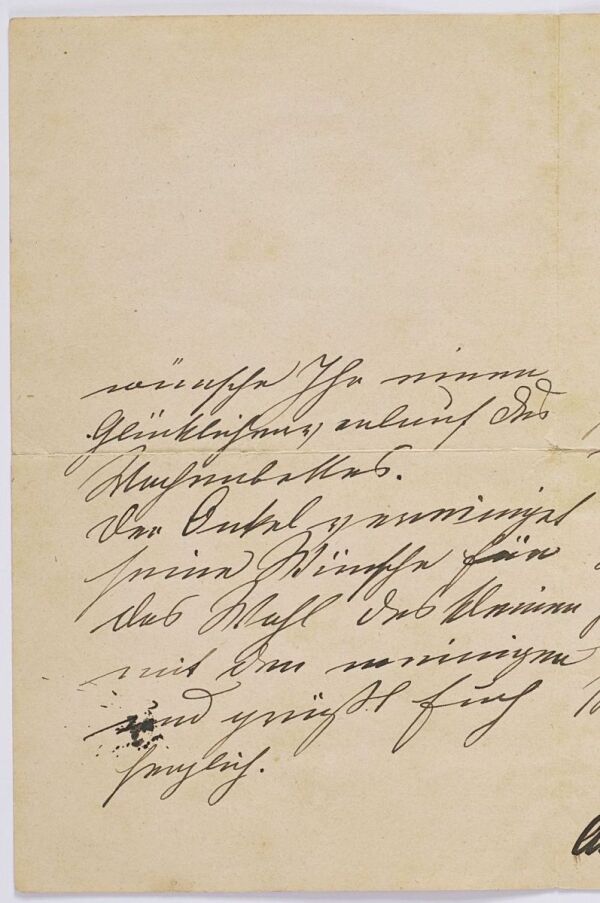 wünsche Ihr einen
Glücklichen verlauf des
Wochenbettes.
Der Onkel vereiniget
seine Wünsche für
das Wohl des kleinen
mit den meinigen
und grüßt Euch
herzlich.